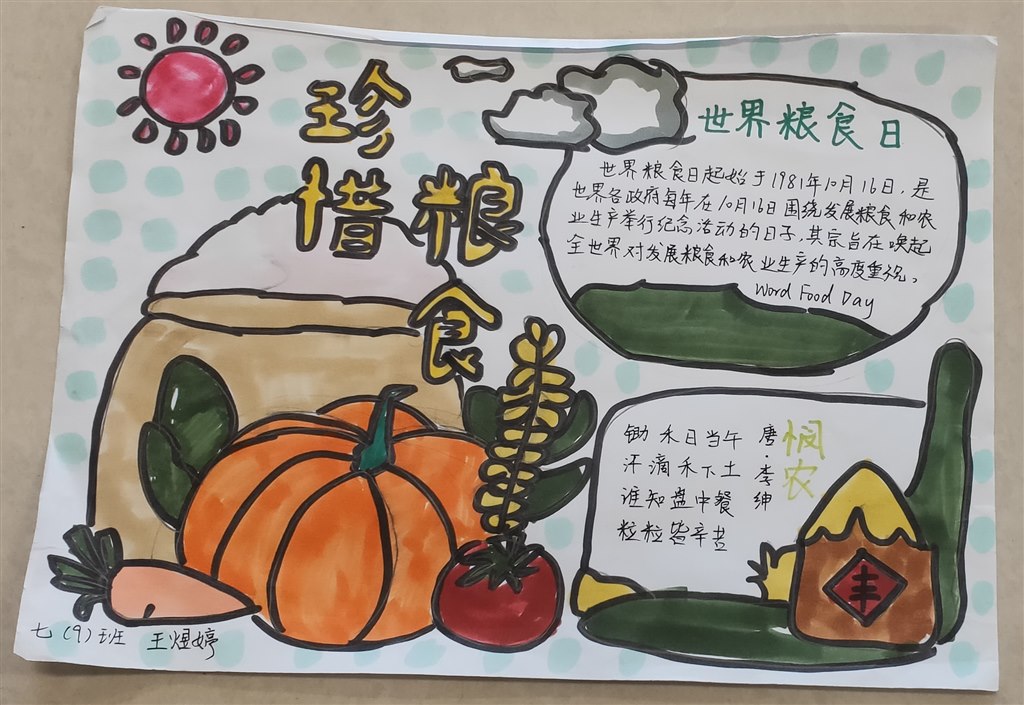 珍
惜粮
食
世界粮食日
世界粮食日起始于1981年10月16日,是
世界各政府每年在10月16日围绕发展粮食和农
业生产举行纪念活动的日子,其宗旨在唤起
全世界对发展粮食和农业生产的高度重视。
Word Food Day
悯农
唐·李绅
锄禾日当午
汗滴禾下土
谁知盘中餐
粒粒皆辛苦
丰
七(9)班 王煜婷